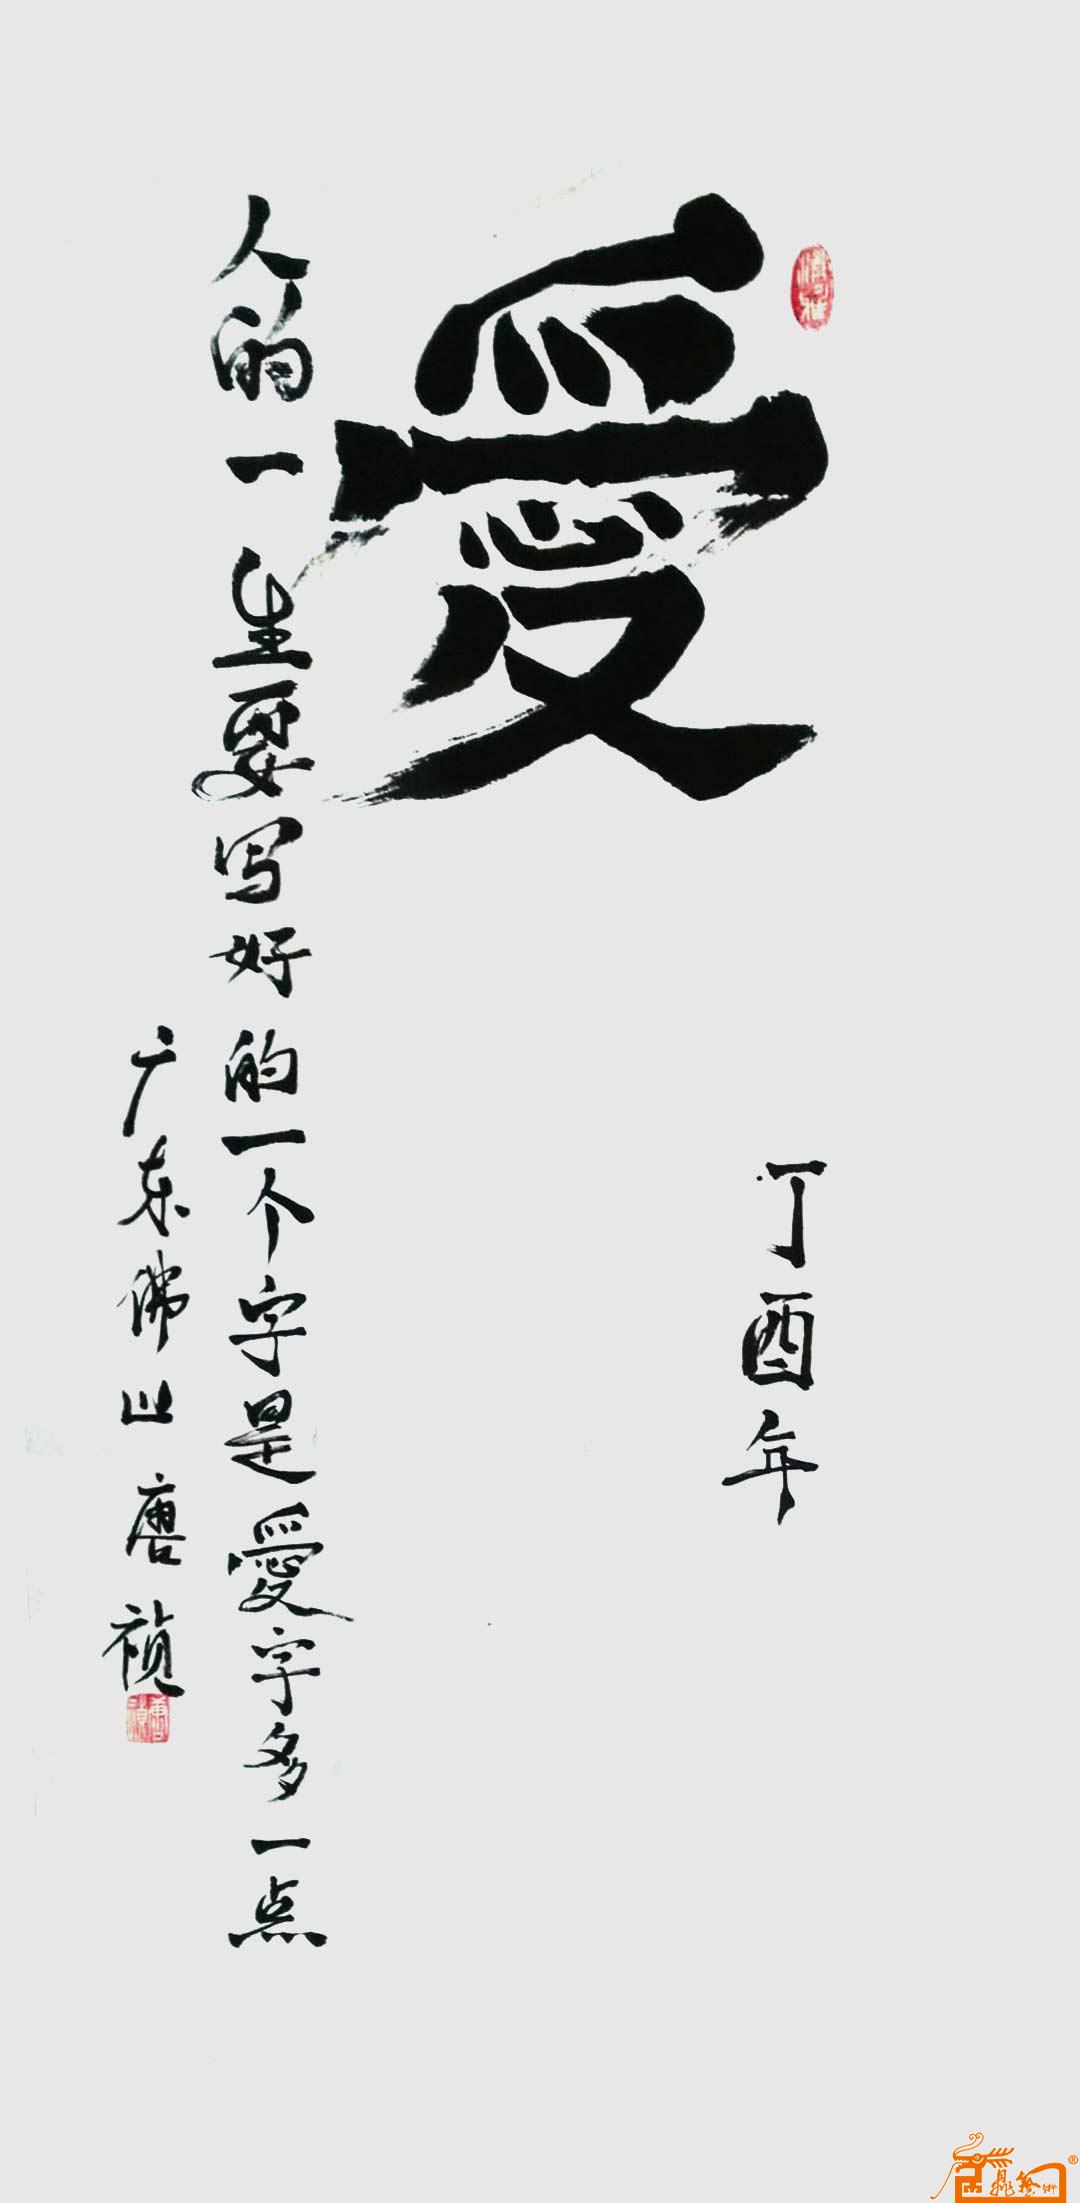 愛
丁酉年
人的一生要写好的一个字是愛字多一点
广东佛山唐祯
唐祯